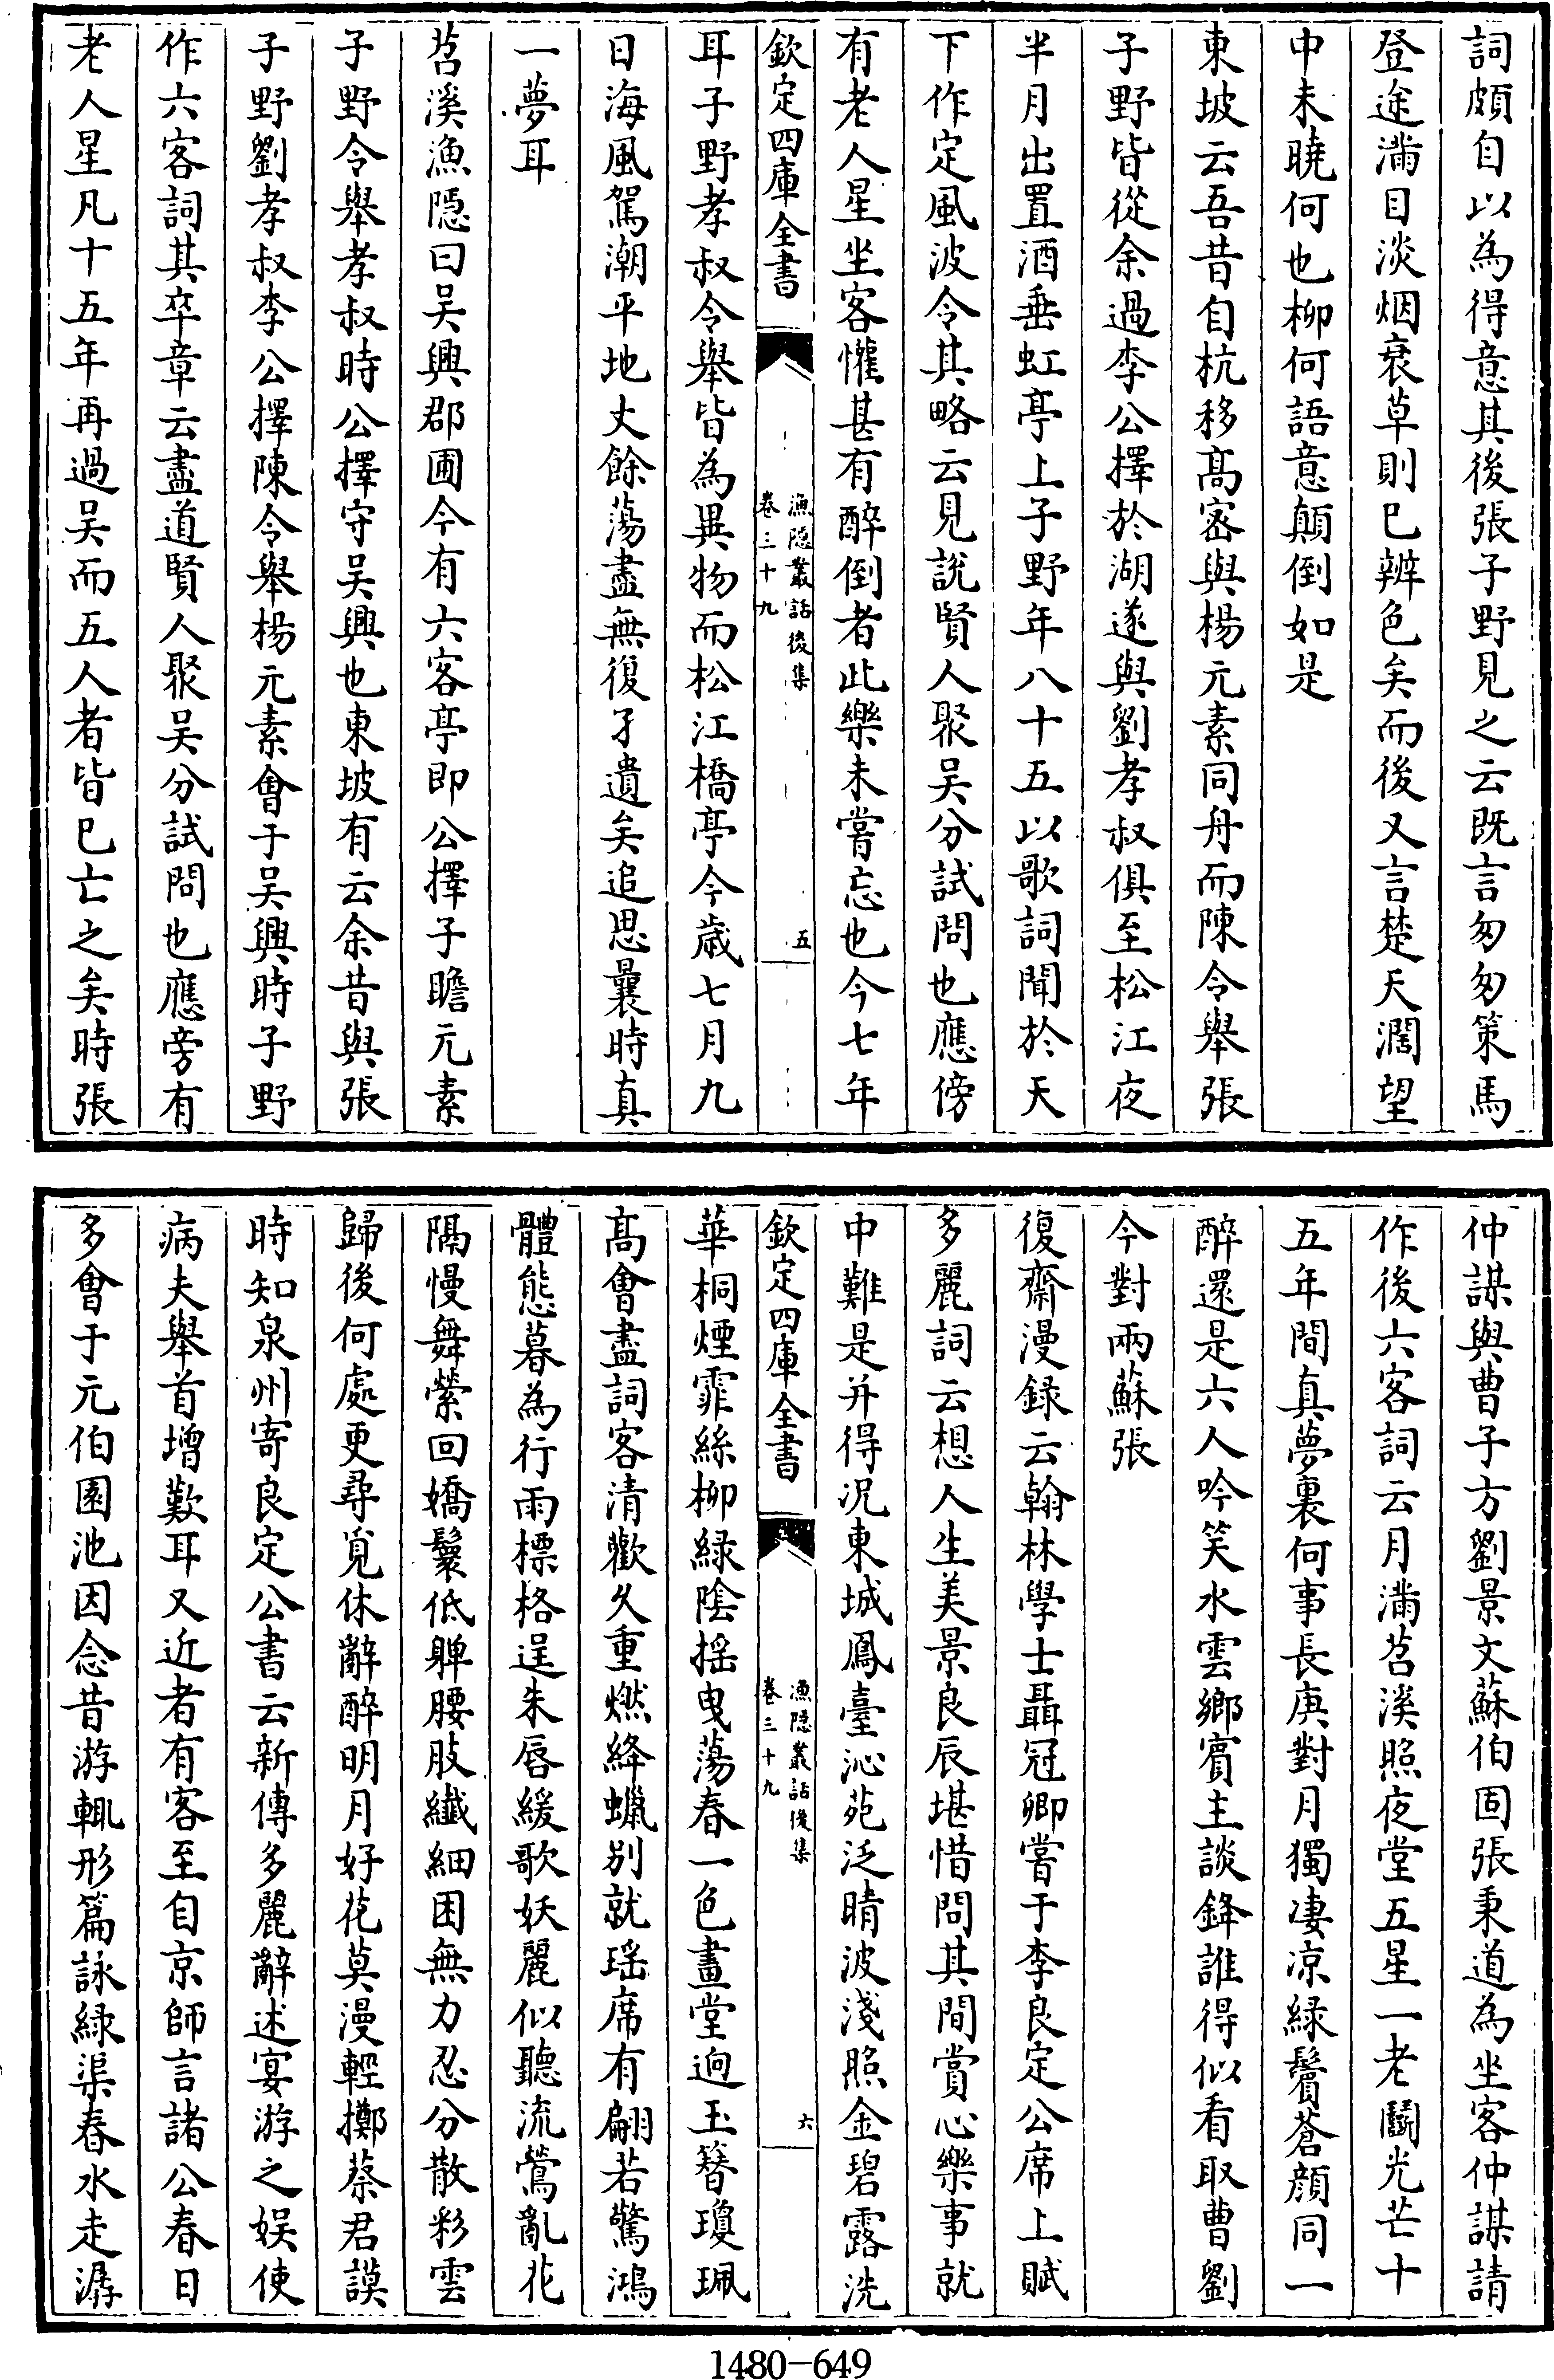 詞頗自以為得意其後張子野見之云既言匆匆策馬
登途滿目淡烟衰草則已辨色矣而後又言楚天濶望
中未曉何也柳何語意顛倒如是
東坡云吾昔自杭移髙宻與楊元素同舟而陳令舉張
子野皆從余過李公擇於湖遂與劉孝叔俱至松江夜
半月出置酒垂虹亭上子野年八十五以歌詞聞於天
下作定風波令其略云見說賢人聚吴分試問也應傍
有老人星坐客懽甚有醉倒者此樂未嘗忘也今七年
欽定四庫全書
漁隠叢話後集
卷三十九
五
耳子野孝叔令舉皆為異物而松江橋亭今歲七月九
日海風駕潮平地丈餘蕩盡無復孑遺矣追思曩時真
一夢耳
苕溪漁隠曰吴興郡圃今有六客亭即公擇子瞻元素
子野令舉孝叔時公擇守吴興也東坡有云余昔與張
子野劉孝叔李公擇陳令舉楊元素會于吴興時子野
作六客詞其卒章云盡道賢人聚吴分試問也應旁有
老人星凡十五年再過吴而五人者皆已亡之矣時張
仲謀與曹子方劉景文蘇伯固張秉道為坐客仲謀請
作後六客詞云月滿苕溪照夜堂五星一老鬭光芒十
五年間真夢裏何事長庚對月獨凄凉緑鬢蒼顔同一
醉還是六人吟笑水雲鄉賓主談鋒誰得似看取曹劉
今對兩蘇張
復齋漫録云翰林學士聶冠卿嘗于李良定公席上賦
多麗詞云想人生美景良辰堪惜問其間賞心樂事就
中難是并得况東城鳳臺沁苑泛晴波淺照金碧露洗
欽定四庫全書
漁隠叢話後集
卷三十九
六
華桐煙霏絲柳緑陰摇曳蕩春一色畫堂逈玉簪瓊珮
髙會盡詞客清歡久重燃絳蠟别就瑶席有翩若驚鴻
體態暮為行雨標格逞朱唇緩歌妖麗似聽流鶯亂花
隔慢舞縈回嬌鬟低軃腰肢纖細困無力忍分散彩雲
歸後何處更尋覓休辭醉明月好花莫漫輕擲蔡君謨
時知泉州寄良定公書云新傳多麗辭述宴游之娱使
病夫舉首增歎耳又近者有客至自京師言諸公春日
多會于元伯園池因念昔游輒形篇詠緑渠春水走潺
1480-649